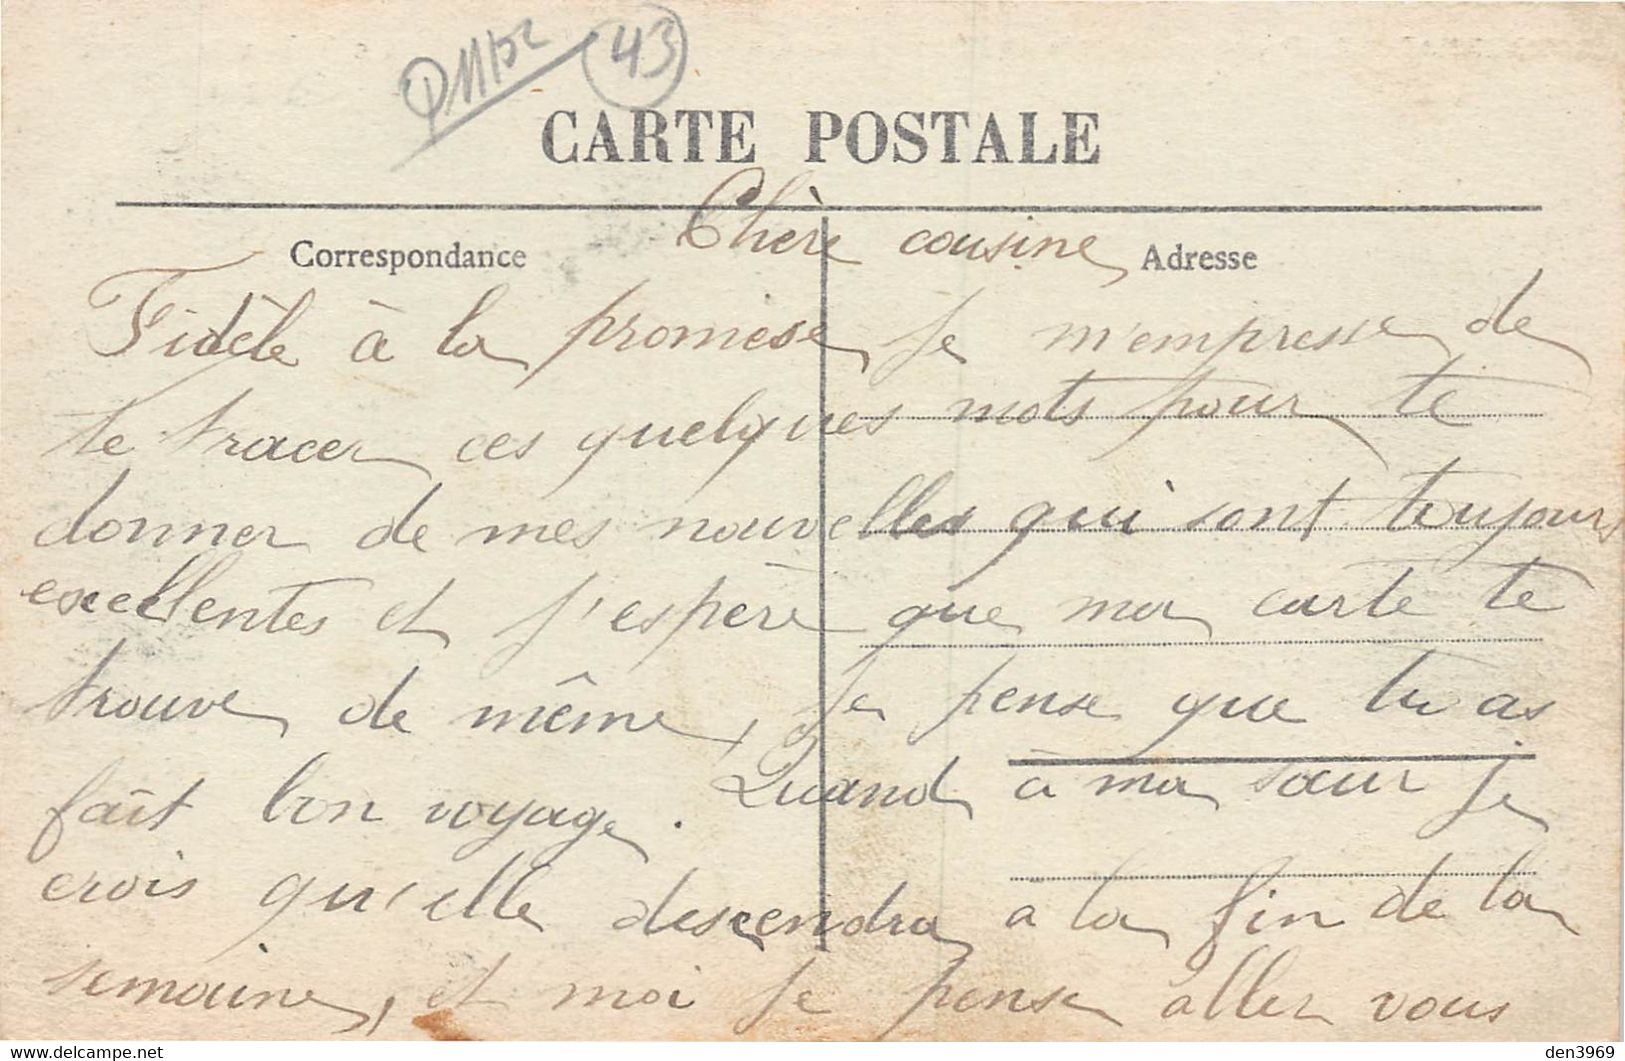 43
CARTE POSTALE
Chère cousine
Correspondance
Adresse
Fidèle à la promese, je m'empresse de
te tracer ces quelques mots pour te
donner de mes nouvelles qui sont toujours
excellentes et j'espère que ma carte te
trouve de même, Je pense que tu as
fait bon voyage. Quand à ma sœur je
crois qu'elle descendra a la fin de la
semaine, et moi je pense aller vous
den3969